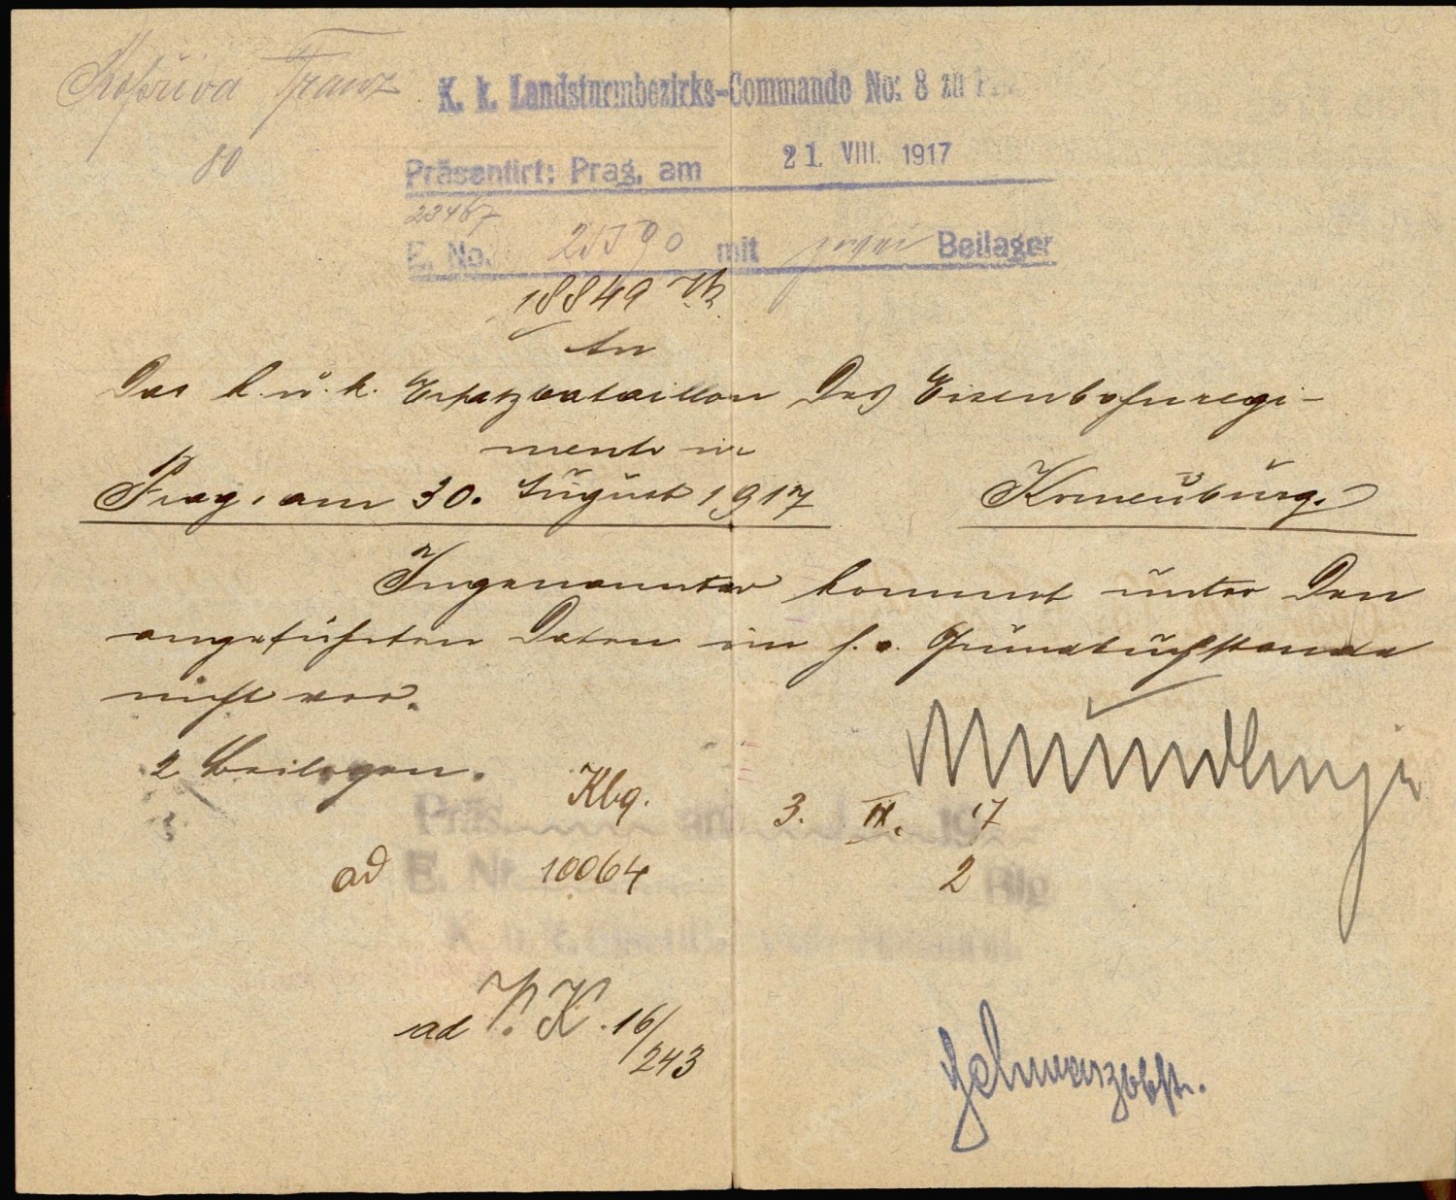 Kopřiva Franz
80
K. k. Landsturmbezirks-Commando No: 8 zu
Präsentirt: Prag, am 21. VIII. 1917
23467
E. No. mit zwei Beilagen
18849
An
das k. u. k. Ersatzbataillon des Eisenbahnregi-
ments in
Prag, am 30. August 1917 Korneuburg.
Ingenannter kommt unter den
angeführten Daten im h. o. Grundbuchstande
nicht vor.
2 Beilagen.
Kbg.
Präs. am 3. IX. 1917
ad E. Nr. 10064 2 Blg
K. u. k.
ad V. K. 16/243